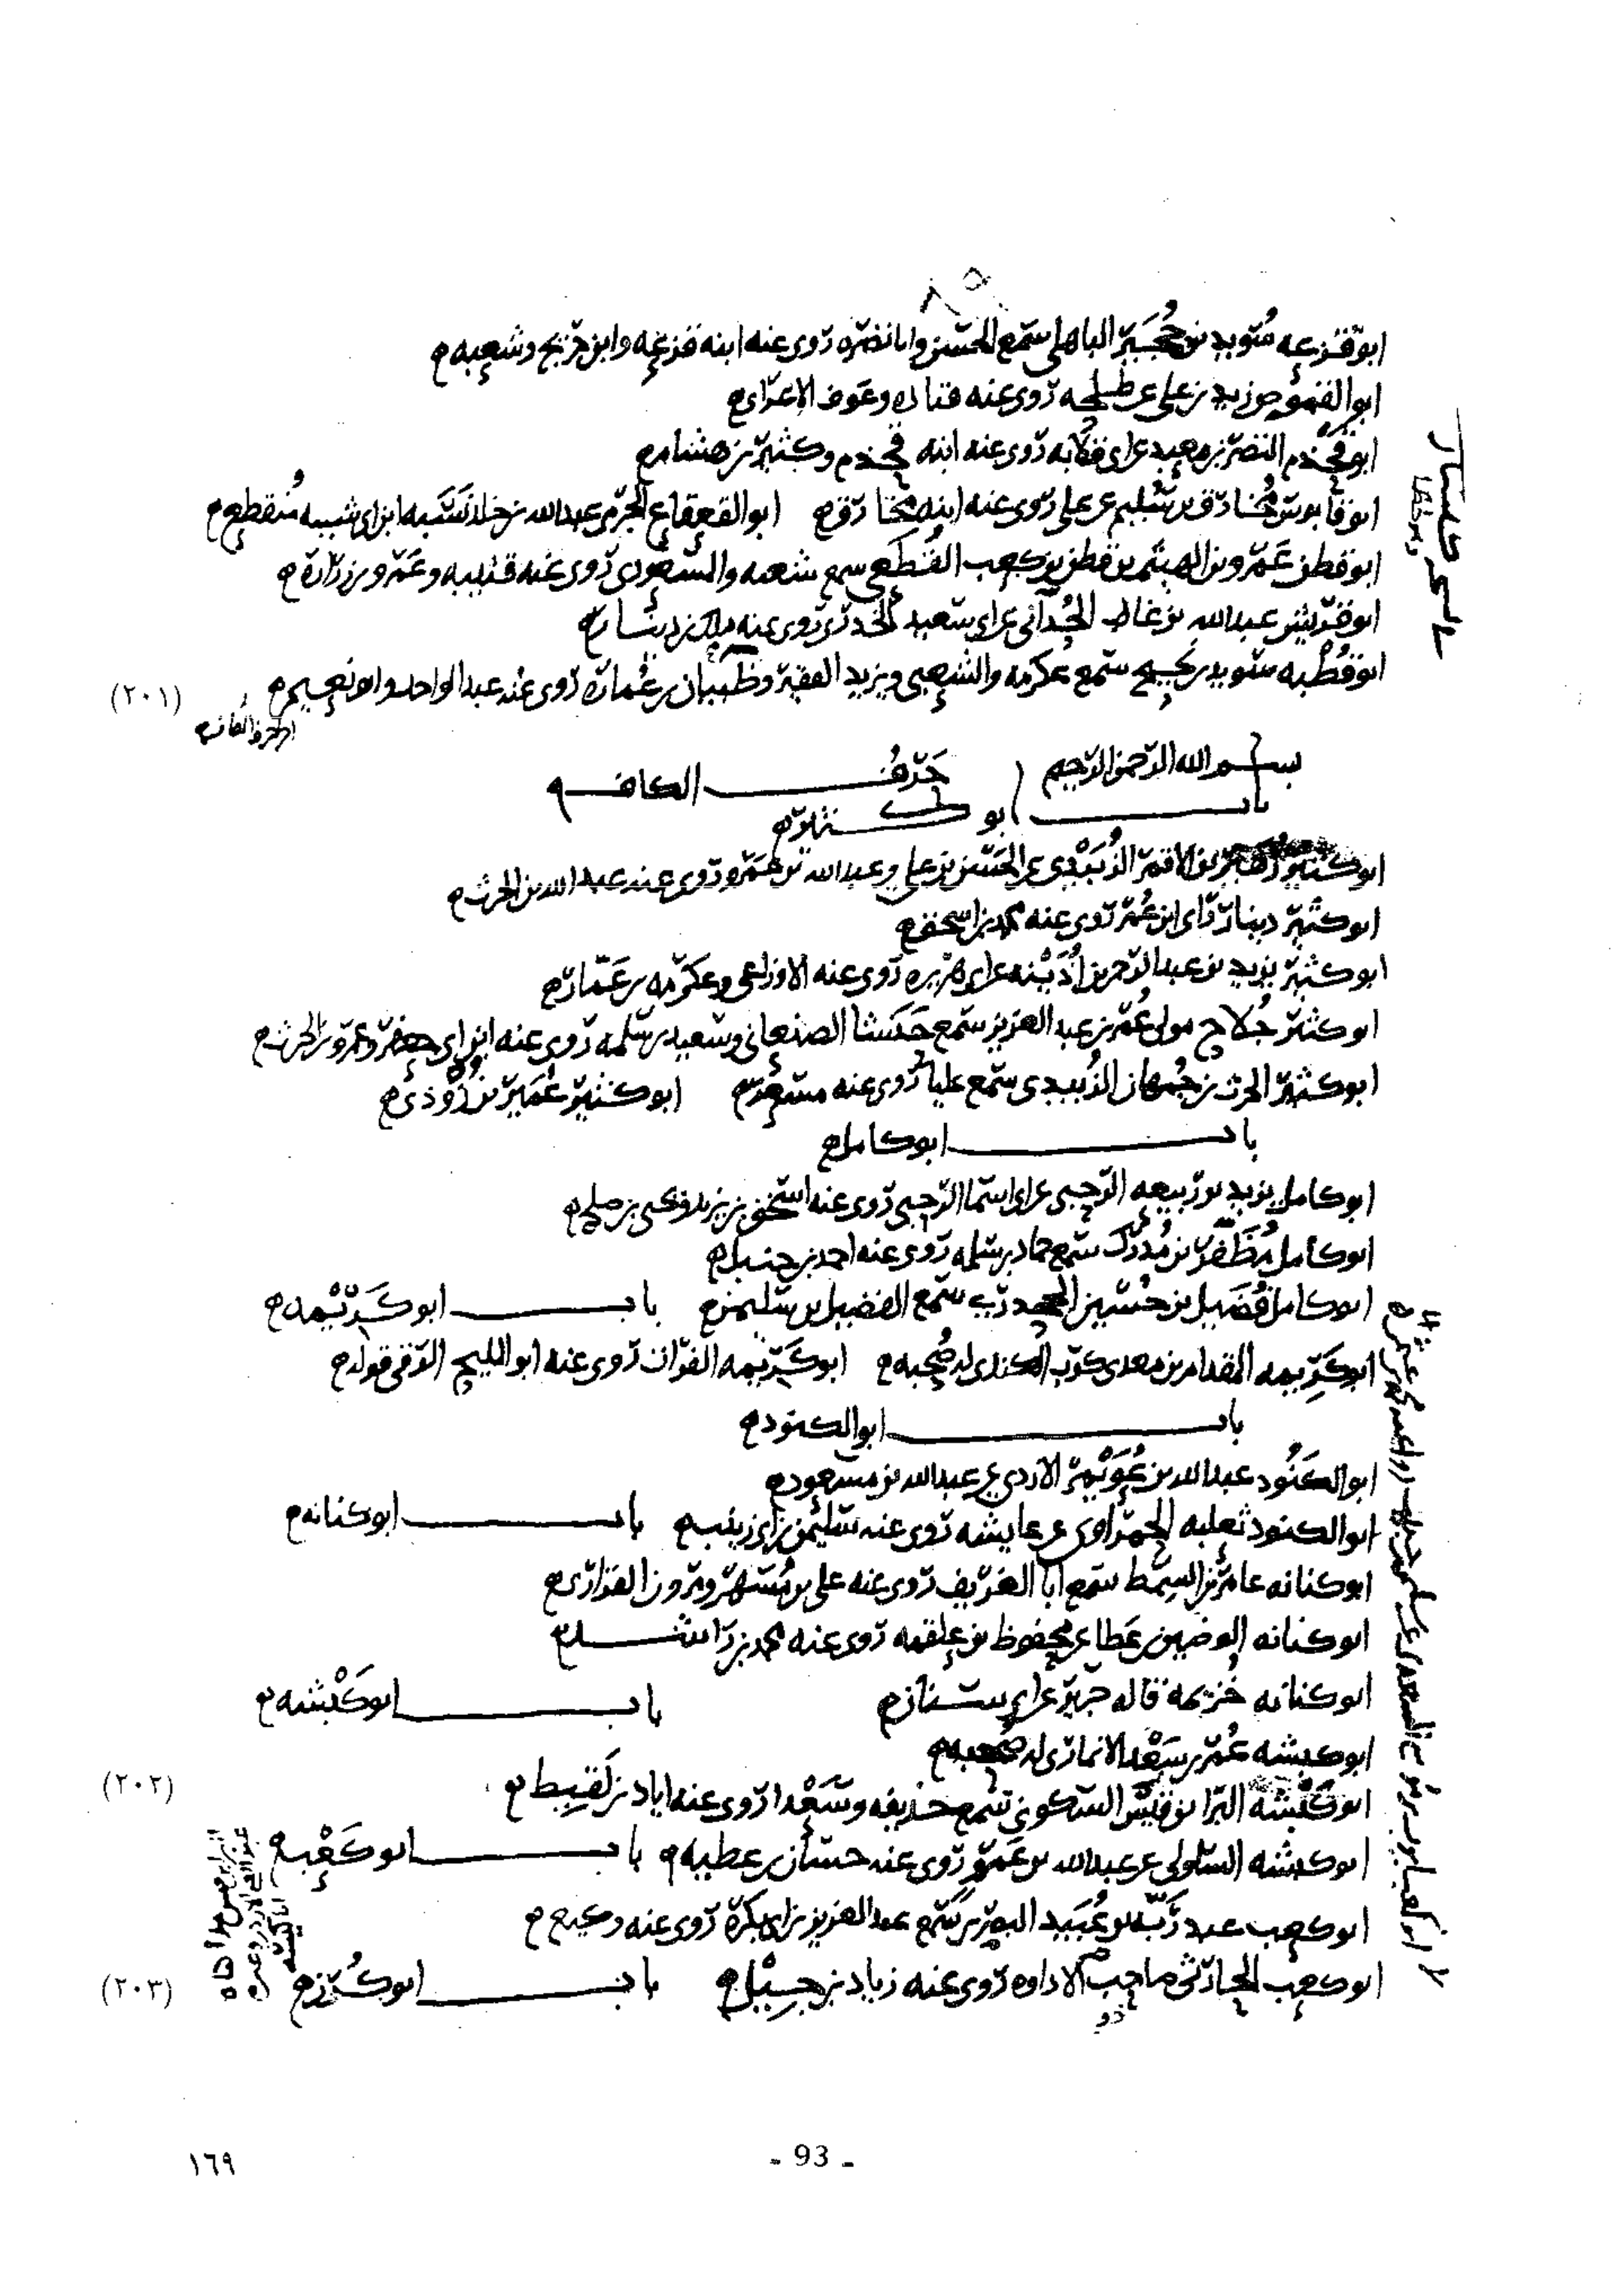 ابو قزعه سُويد بن حُجَير الباهلي سمع الحسن وابا نضره روى عنه ابنه قزعه وابن جريج وشعبه
ابو القموص زيد بن علي عن طلحه روى عنه قتاده وعوف الاعرابي
ابو قحذم النضر بن معبد عن ابي قلابه روى عنه ابنه قحذم وكثير بن هشام
ابو قابوس مُخارق بن سُليم عن علي روى عنه ابنه مخارق ابو القعقاع الجرمي عبدالله بن خالد نسبه ابن ابي شيبه مُنقطع
ابو قطن عَمرو بن الهيثم بن قطن بن كعب القُطَعي سمع شعبه والمسعودي روى عنه قتيبه وعَمرو بن زراره
ابو قريش عبدالله بن غالب الحُدّاني عن ابي سعيد الخدري روى عنه ملك بن دينار
ابو قُطْبه سويد بن نجيح سمع عكرمه والشعبي ويزيد الفقير وظبيان بن عُماره روى عنه عبدالواحد وابو نعيم
(٢٠١)
بسم الله الرحمن الرحيم حَرفُ الكاف
باب ابو كثير
ابو كثير زُهير بن الاقمر الزُبَيْدي عن الحَسَن بن علي وعبدالله بن عَمرو روى عنه عبدالله بن الحرث
ابو كثير دينار راى ابن عُمر روى عنه محمد بن اسحق
ابو كثير يزيد بن عبدالرحمن بن اُذَيْنه عن ابي هريره روى عنه الاوزاعي وعكرمه بن عَمّار
ابو كثير جُلاح مولى عُمر بن عبد العزيز سمع حَنَشا الصنعاني وسعيد بن سلمه روى عنه ابن ابي جعفر وعمرو بن الحرث
ابو كثير الحرث بن جُمهان الزُبيدي سمع عليا روى عنه مسعر ابو كثير عُمَير بن زوذي
باب ابو كامل
ابو كامل يزيد بن ربيعه الرحبي عن ابي اسما الرحبي روى عنه اسحق بن يزيد ويحيى بن صلح
ابو كامل مُظَفّر بن مُدرك سمع حماد بن سلمه روى عنه احمد بن حنبل
ابو كامل فُضَيل بن حُسَين الجحدري سمع الفضيل بن سليمن باب ابو كَريْمه
ابو كَرِيمه المقدام بن معدي كرب الكندي له صُحبه ابو كَريمه الفرات روى عنه ابو المليح الرقي قوله
باب ابو الكنود
ابو الكَنُود عبدالله بن عُوَيْمر الازدي عن عبدالله بن مسعود
ابو الكنود ثعلبه الحمراوي عن عايشه روى عنه سليمن بن ابي زينب باب ابو كنانه
ابو كنانه عامر بن السِمط سمع ابا الغريف روى عنه علي بن مُسهر ومرون الفزاري
ابو كنانه الوضين بن عَطا عن محفوظ بن علقمه روى عنه محمد بن راشد
ابو كنانه خُزيمه قاله جرير عن ابي سنان باب ابو كَبْشه
ابو كبشه عُمر بن سَعْد الانماري له صُحبه
ابو كَبْشه البرا بن قيس السكوني سمع حذيفه وسَعْدا روى عنه اياد بن لَقِيط
(٢٠٢)
ابو كبشه السلولي عن عبدالله بن عَمرو روى عنه حسّان بن عطيه باب ابو كَعْب
ابو كعب عبد رَبّه بن عُبَيد البصري سمع عبد العزيز بن ابي بكرة روى عنه وكيع
ابو كعب الحارثي صاحب الاداوه روى عنه زياد بن جبيل باب ابو كُرز
ذو
(٢٠٣)
- 93 -
١٦٩